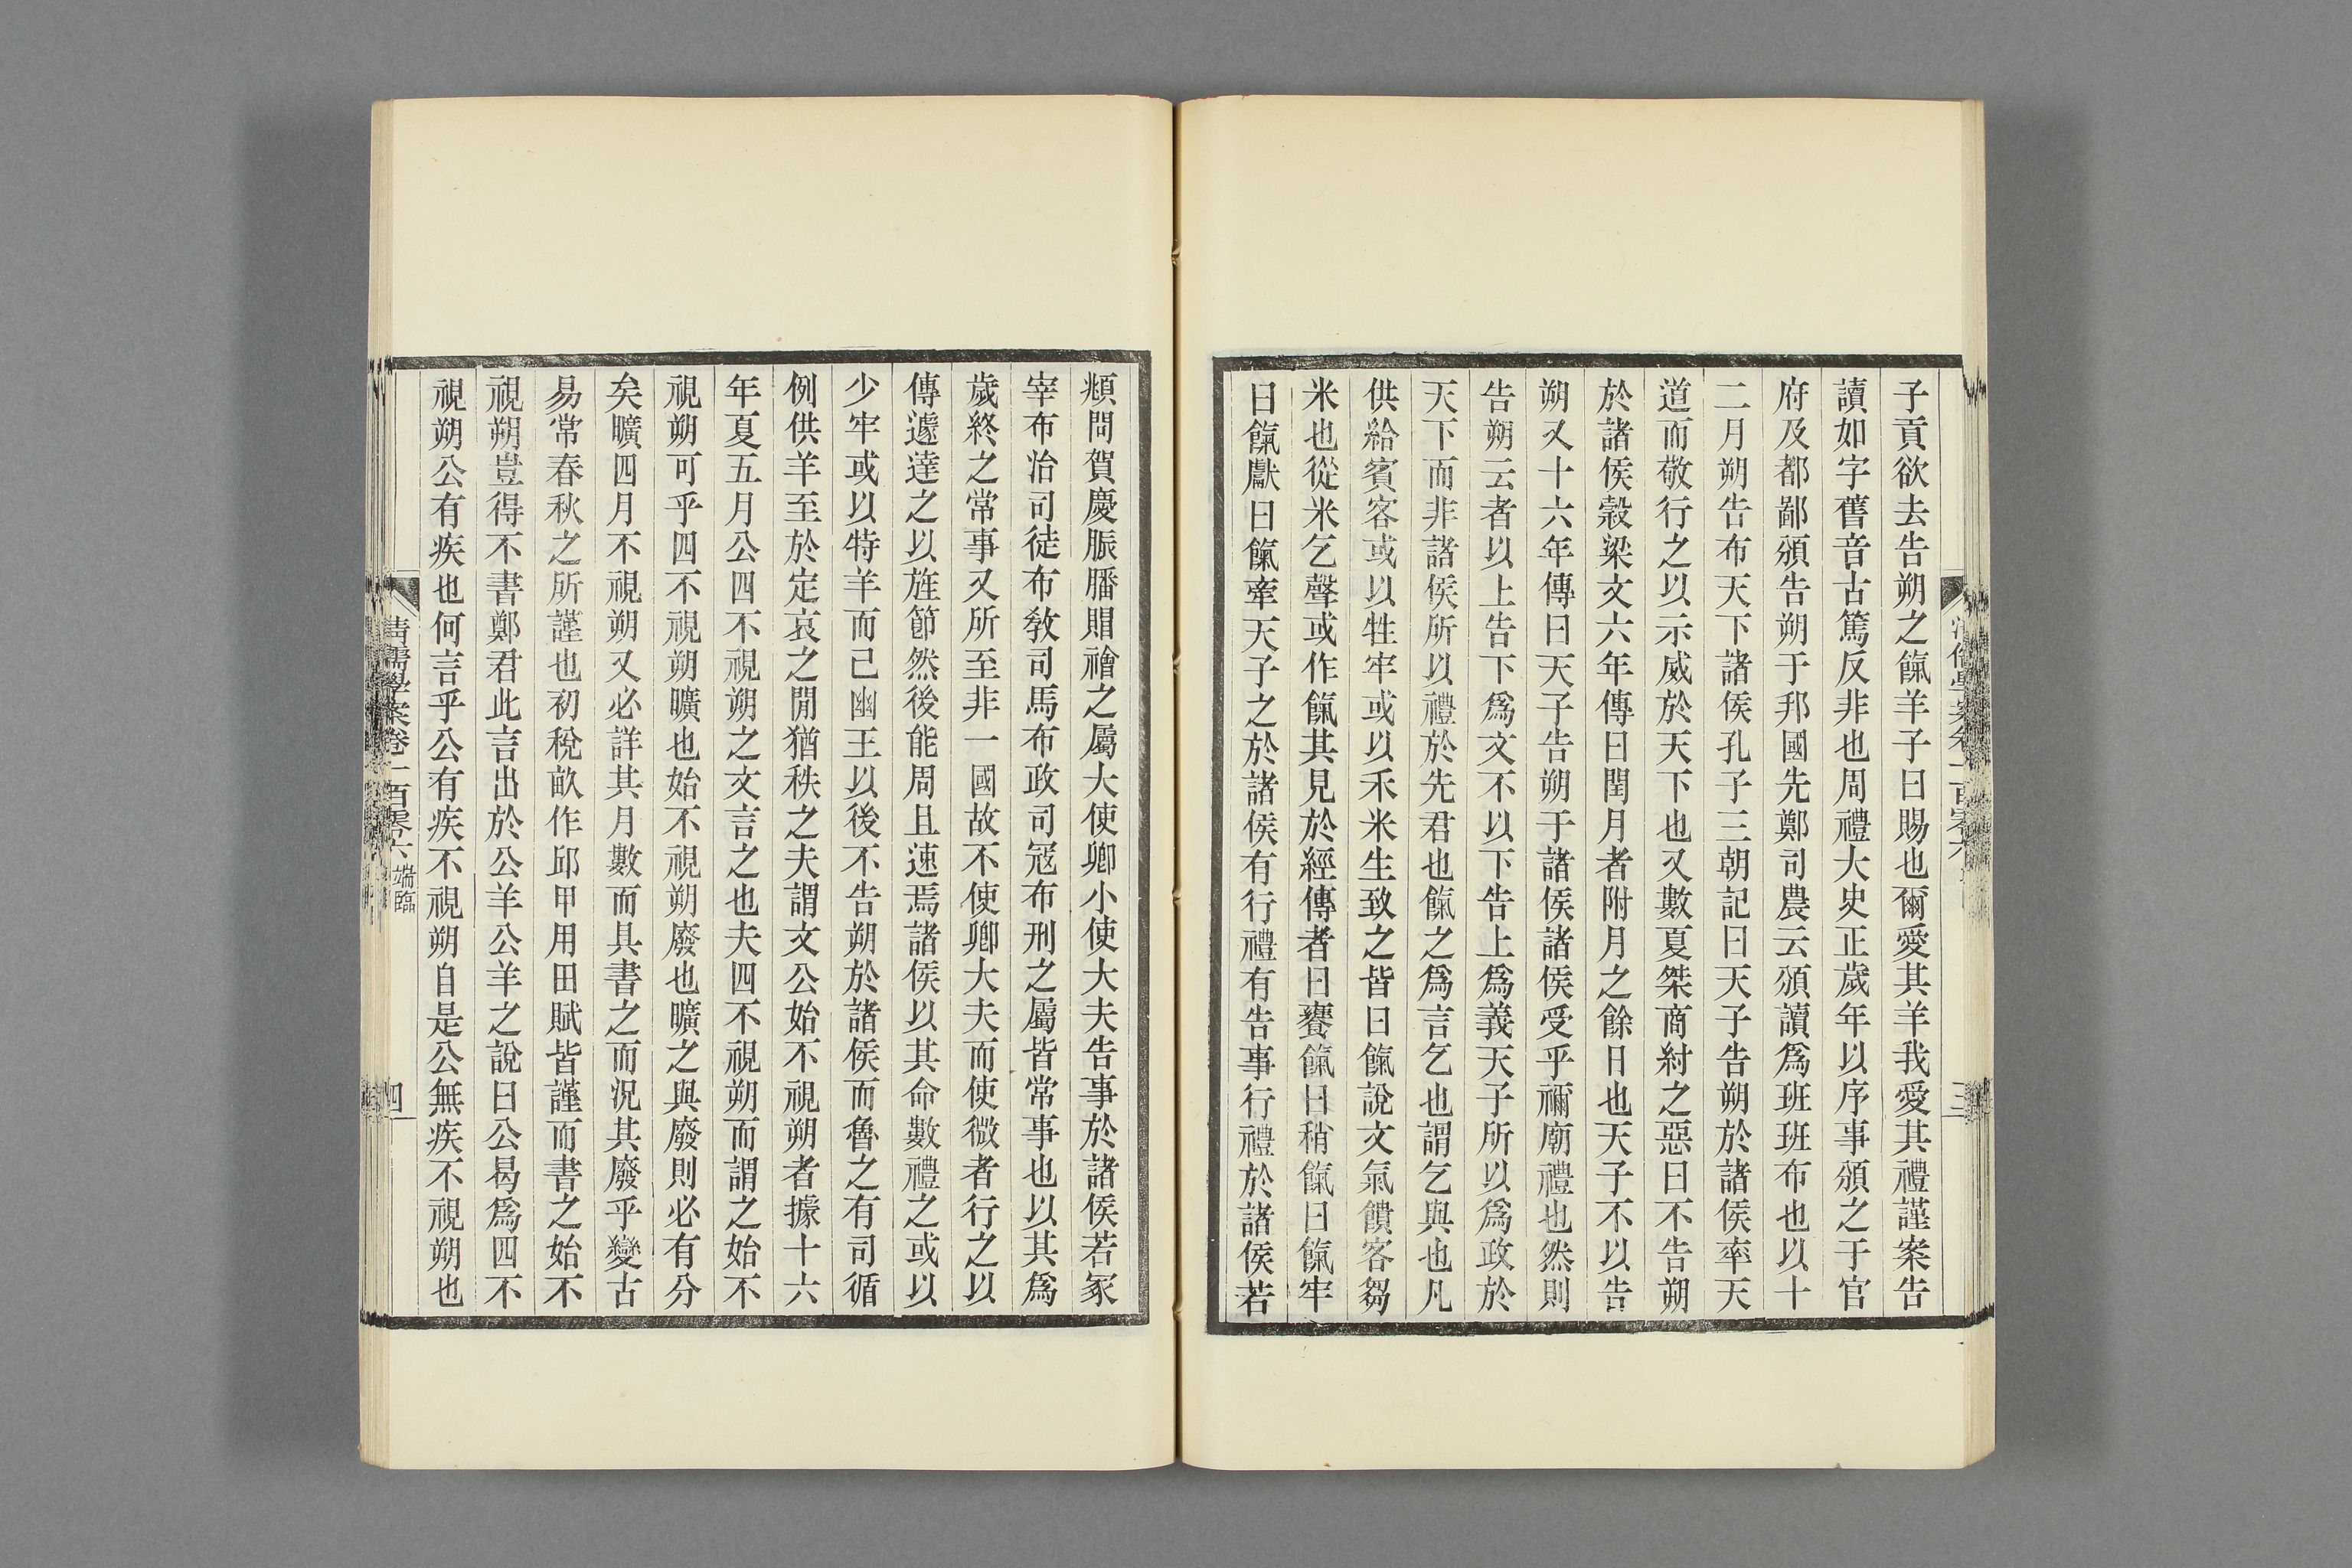 子貢欲去告朔之餼羊子曰賜也爾愛其羊我愛其禮謹案告
讀如字舊音古篤反非也周禮大史正歲年以序事頒之于官
府及都鄙頒告朔于邦國先鄭司農云頒讀爲班班布也以十
二月朔告布天下諸侯孔子三朝記曰天子告朔於諸侯率天
道而敬行之以示威於天下也又數夏桀商紂之惡曰不告朔
於諸侯穀梁文六年傳曰閏月者附月之餘日也天子不以告
朔又十六年傳曰天子告朔于諸侯諸侯受乎禰廟禮也然則
告朔云者以上告下爲文不以下告上爲義天子所以爲政於
天下而非諸侯所以禮於先君也餼之爲言乞也謂乞與也凡
供給賓客或以牲牢或以禾米生致之皆曰餼說文氣饋客芻
米也從米乞聲或作餼其見於經傳者曰饔餼曰稍餼曰餼牢
曰餼獻曰餼牽天子之於諸侯有行禮有告事行禮於諸侯若
頫問賀慶脤膰賵禬之屬大使卿小使大夫告事於諸侯若冢
宰布治司徒布敎司馬布政司寇布刑之屬皆常事也以其爲
歲終之常事又所至非一國故不使卿大夫而使微者行之以
傳遽達之以旌節然後能周且速焉諸侯以其命數禮之或以
少牢或以特羊而已幽王以後不告朔於諸侯而魯之有司循
例供羊至於定哀之閒猶秩之夫謂文公始不視朔者據十六
年夏五月公四不視朔之文言之也夫四不視朔而謂之始不
視朔可乎四不視朔曠也始不視朔廢也曠之與廢則必有分
矣曠四月不視朔又必詳其月數而具書之而況其廢乎變古
易常春秋之所謹也初稅畝作邱甲用田賦皆謹而書之始不
視朔豈得不書鄭君此言出於公羊公羊之說曰公曷爲四不
視朔公有疾也何言乎公有疾不視朔自是公無疾不視朔也
清儒學案卷一百零六 端臨
四
三